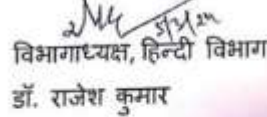 विभागाध्यक्ष, हिन्दी विभाग
डॉ. राजेश कुमार